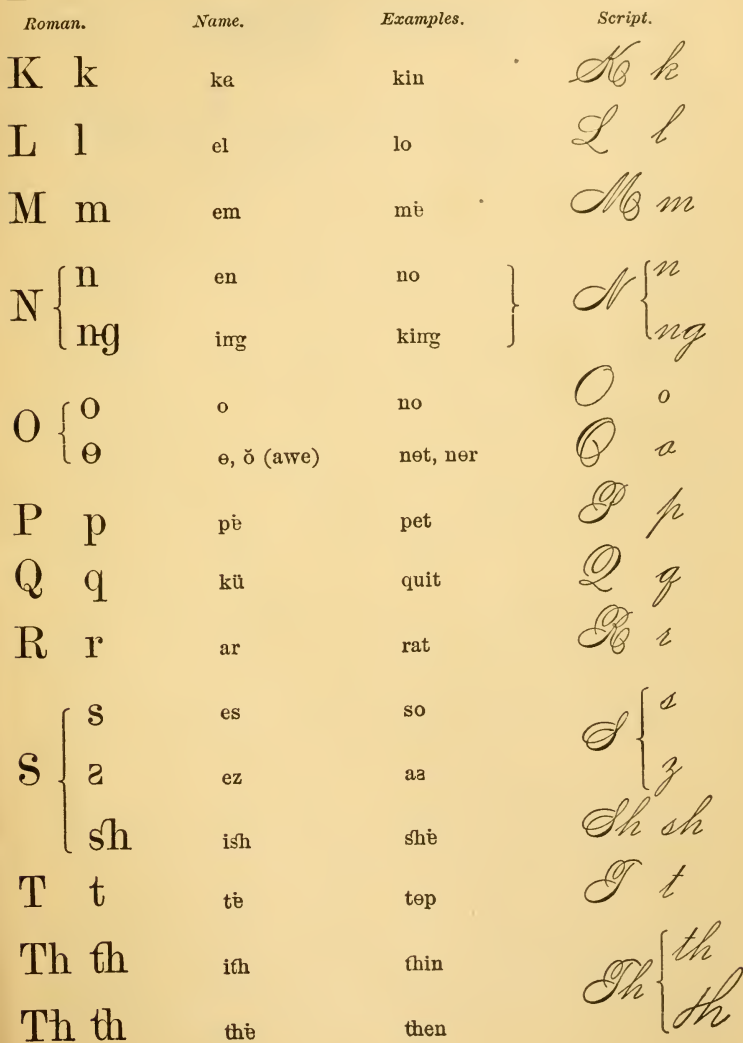 Roman. Name. Examples. Script.
K k ka kin K k
L l el lo L l
M m em mė M m
N n en no N n
ng ing king ng
O o o no O o
ɵ ɵ, ŏ (awe) nɵt, nɵr O a
P p pė pet P p
Q q kü quit Q q
R r ar rat R r
S s es so S s
ƨ ez aƨ z
sh ish shė Sh sh
T t tė tɵp T t
Th th ith thin Th th
Th th thė then th